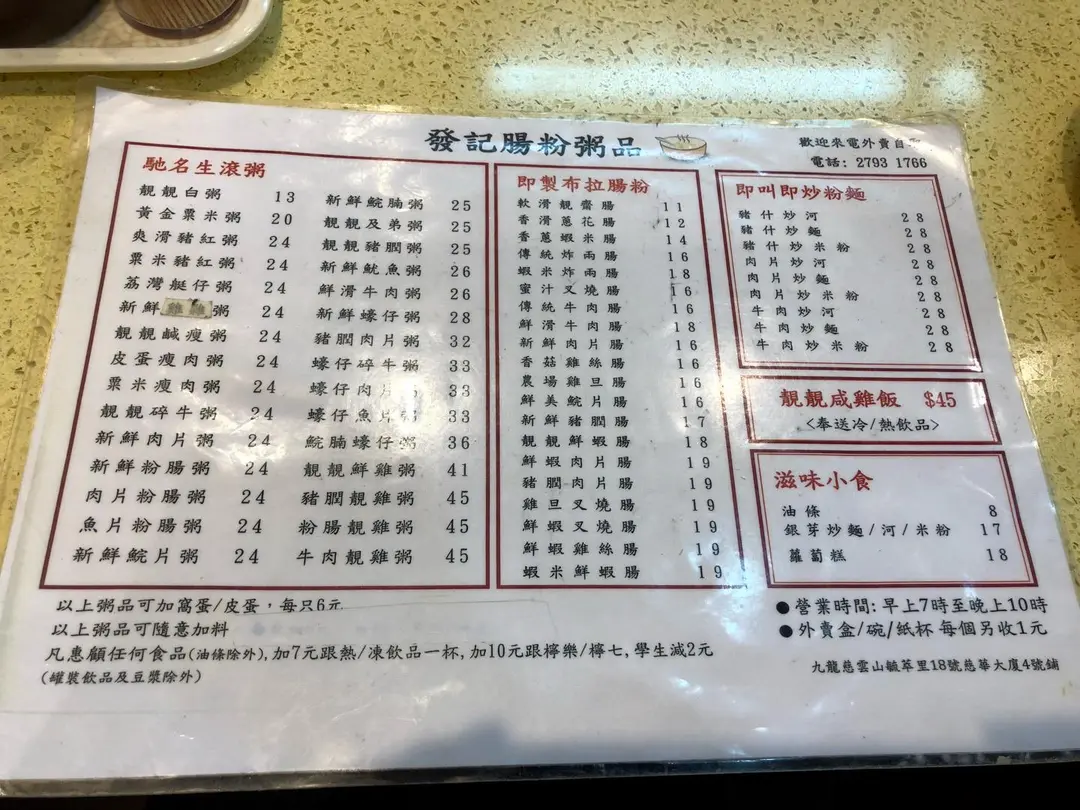 發記腸粉粥品
歡迎來電外賣自
電話: 2793 1766
馳名生滾粥
靚靚白粥 13
黃金粟米粥 20
爽滑豬紅粥 24
粟米豬紅粥 24
荔灣艇仔粥 24
新鮮雞雜粥 24
靚靚鹹瘦粥 24
皮蛋瘦肉粥 24
粟米瘦肉粥 24
靚靚碎牛粥 24
新鮮肉片粥 24
新鮮粉腸粥 24
肉片粉腸粥 24
魚片粉腸粥 24
新鮮鯇片粥 24
新鮮鯇腩粥 25
靚靚及弟粥 25
靚靚豬膶粥 25
新鮮魷魚粥 26
鮮滑牛肉粥 26
新鮮蠔仔粥 28
豬膶肉片粥 32
蠔仔碎牛粥 33
蠔仔肉片粥 33
蠔仔魚片粥 33
鯇腩蠔仔粥 36
靚靚鮮雞粥 41
豬膶靚雞粥 45
粉腸靚雞粥 45
牛肉靚雞粥 45
即製布拉腸粉
軟滑靚齋腸 11
香滑蔥花腸 12
香蔥蝦米腸 14
傳統炸兩腸 16
蝦米炸兩腸 18
蜜汁叉燒腸 16
傳統牛肉腸 16
鮮滑牛肉腸 18
新鮮肉片腸 16
香菇雞絲腸 16
農場雞旦腸 16
鮮美鯇片腸 16
新鮮豬膶腸 17
靚靚鮮蝦腸 18
鮮蝦肉片腸 19
豬膶肉片腸 19
雞旦叉燒腸 19
鮮蝦叉燒腸 19
鮮蝦雞絲腸 19
蝦米鮮蝦腸 19
即叫即炒粉麵
豬什炒河 28
豬什炒麵 28
豬什炒米粉 28
肉片炒河 28
肉片炒麵 28
肉片炒米粉 28
牛肉炒河 28
牛肉炒麵 28
牛肉炒米粉 28
靚靚咸雞飯 $45
<奉送冷/熱飲品>
滋味小食
油條 8
銀芽炒麵/河/米粉 17
蘿蔔糕 18
以上粥品可加窩蛋/皮蛋，每只6元
以上粥品可隨意加料
凡惠顧任何食品(油條除外),加7元跟熱/凍飲品一杯,加10元跟檸樂/檸七,學生減2元
(罐裝飲品及豆漿除外)
●營業時間: 早上7時至晚上10時
●外賣盒/碗/紙杯 每個另收1元
九龍慈雲山毓華里18號慈華大廈4號舖